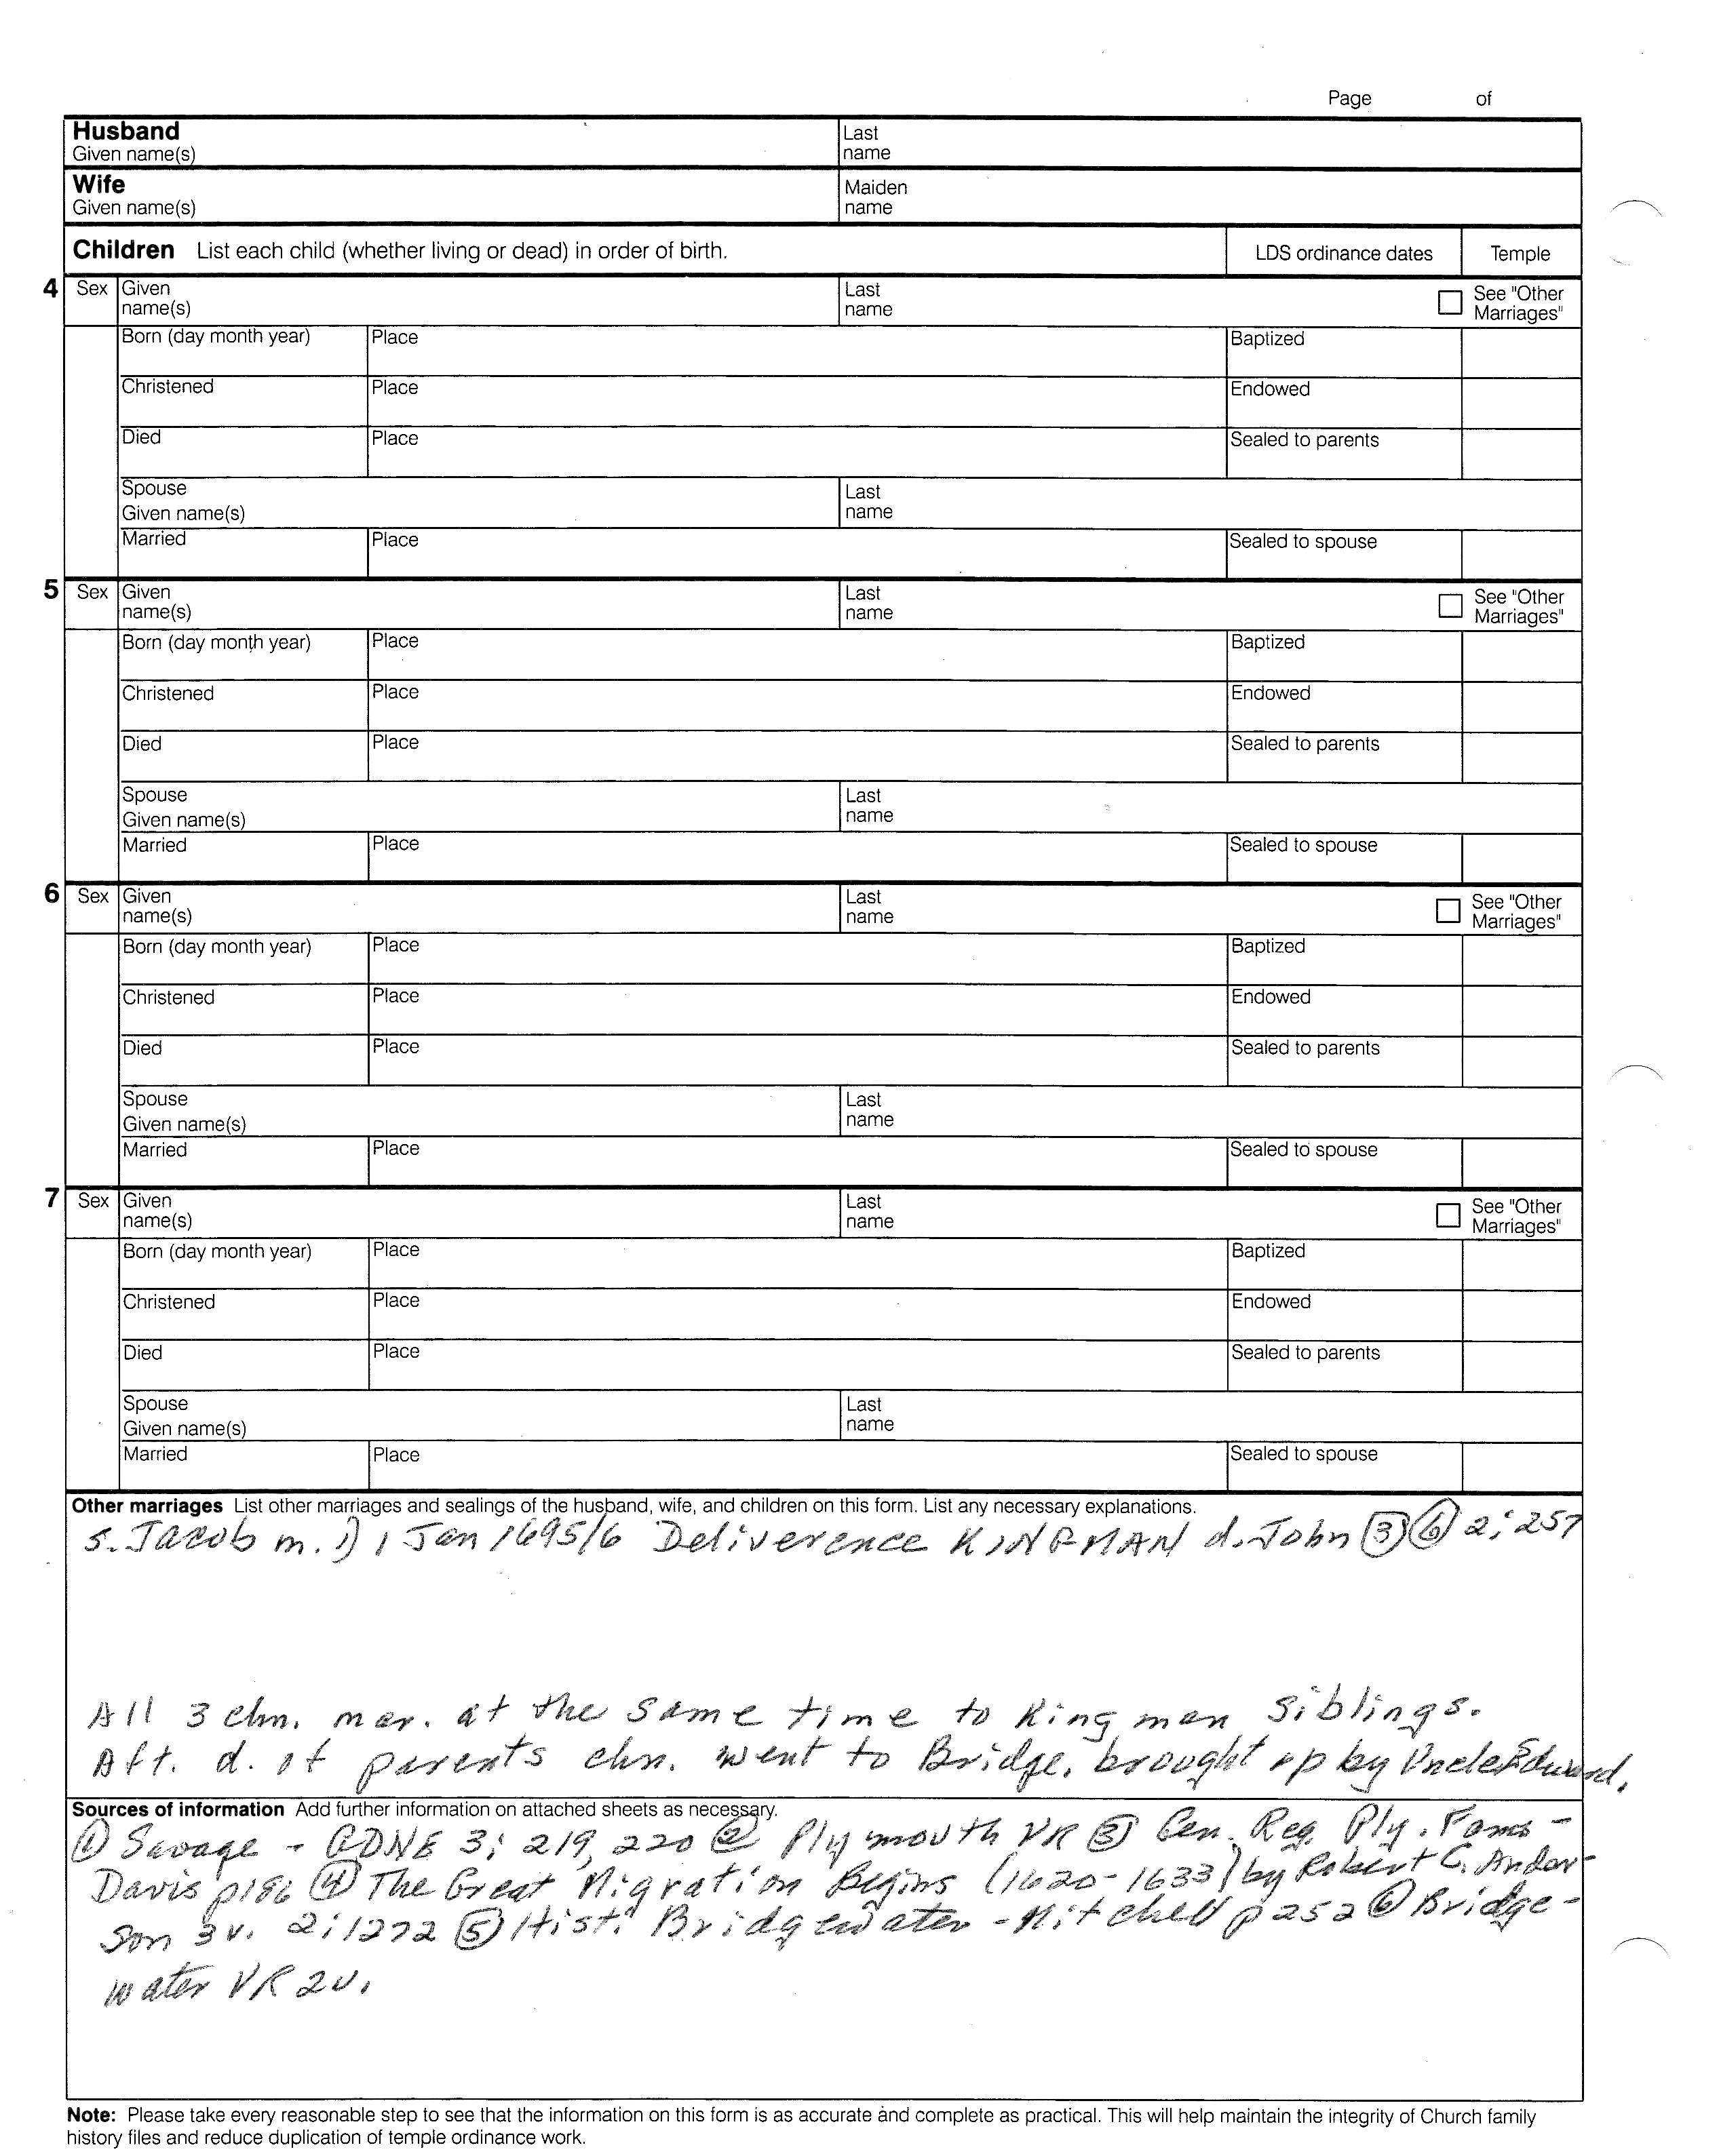 Page of
Husband
Given name(s)
Last
name
Wife
Given name(s)
Maiden
name
Children List each child (whether living or dead) in order of birth. LDS ordinance dates Temple
4 Sex Given
name(s)
Last
name
See "Other
Marriages"
Born (day month year) Place Baptized
Christened Place Endowed
Died Place Sealed to parents
Spouse
Given name(s)
Last
name
Married Place Sealed to spouse
5 Sex Given
name(s)
Last
name
See "Other
Marriages"
Born (day month year) Place Baptized
Christened Place Endowed
Died Place Sealed to parents
Spouse
Given name(s)
Last
name
Married Place Sealed to spouse
6 Sex Given
name(s)
Last
name
See "Other
Marriages"
Born (day month year) Place Baptized
Christened Place Endowed
Died Place Sealed to parents
Spouse
Given name(s)
Last
name
Married Place Sealed to spouse
7 Sex Given
name(s)
Last
name
See "Other
Marriages"
Born (day month year) Place Baptized
Christened Place Endowed
Died Place Sealed to parents
Spouse
Given name(s)
Last
name
Married Place Sealed to spouse
Other marriages List other marriages and sealings of the husband, wife, and children on this form. List any necessary explanations.
s. Jacob m. 1) 1 Jan 1695/6 Deliverence KINGMAN d. John ③ ⑥ 2; 257
All 3 chn. mar. at the same time to Kingman siblings.
Aft. d. of parents chn. went to Bridge, brought up by Uncle Edward.
Sources of information Add further information on attached sheets as necessary.
① Savage - GDNE 3: 219, 220 ② Plymouth VR ③ Gen. Reg. Ply. Fams -
Davis p186 ④ The Great Migration Begins (1620-1633) by Robert C. Ander-
son 3v. 2:1272 ⑤ Hist. Bridgewater - Mitchell p 252 ⑥ Bridge-
water VR 2v.
Note: Please take every reasonable step to see that the information on this form is as accurate and complete as practical. This will help maintain the integrity of Church family
history files and reduce duplication of temple ordinance work.